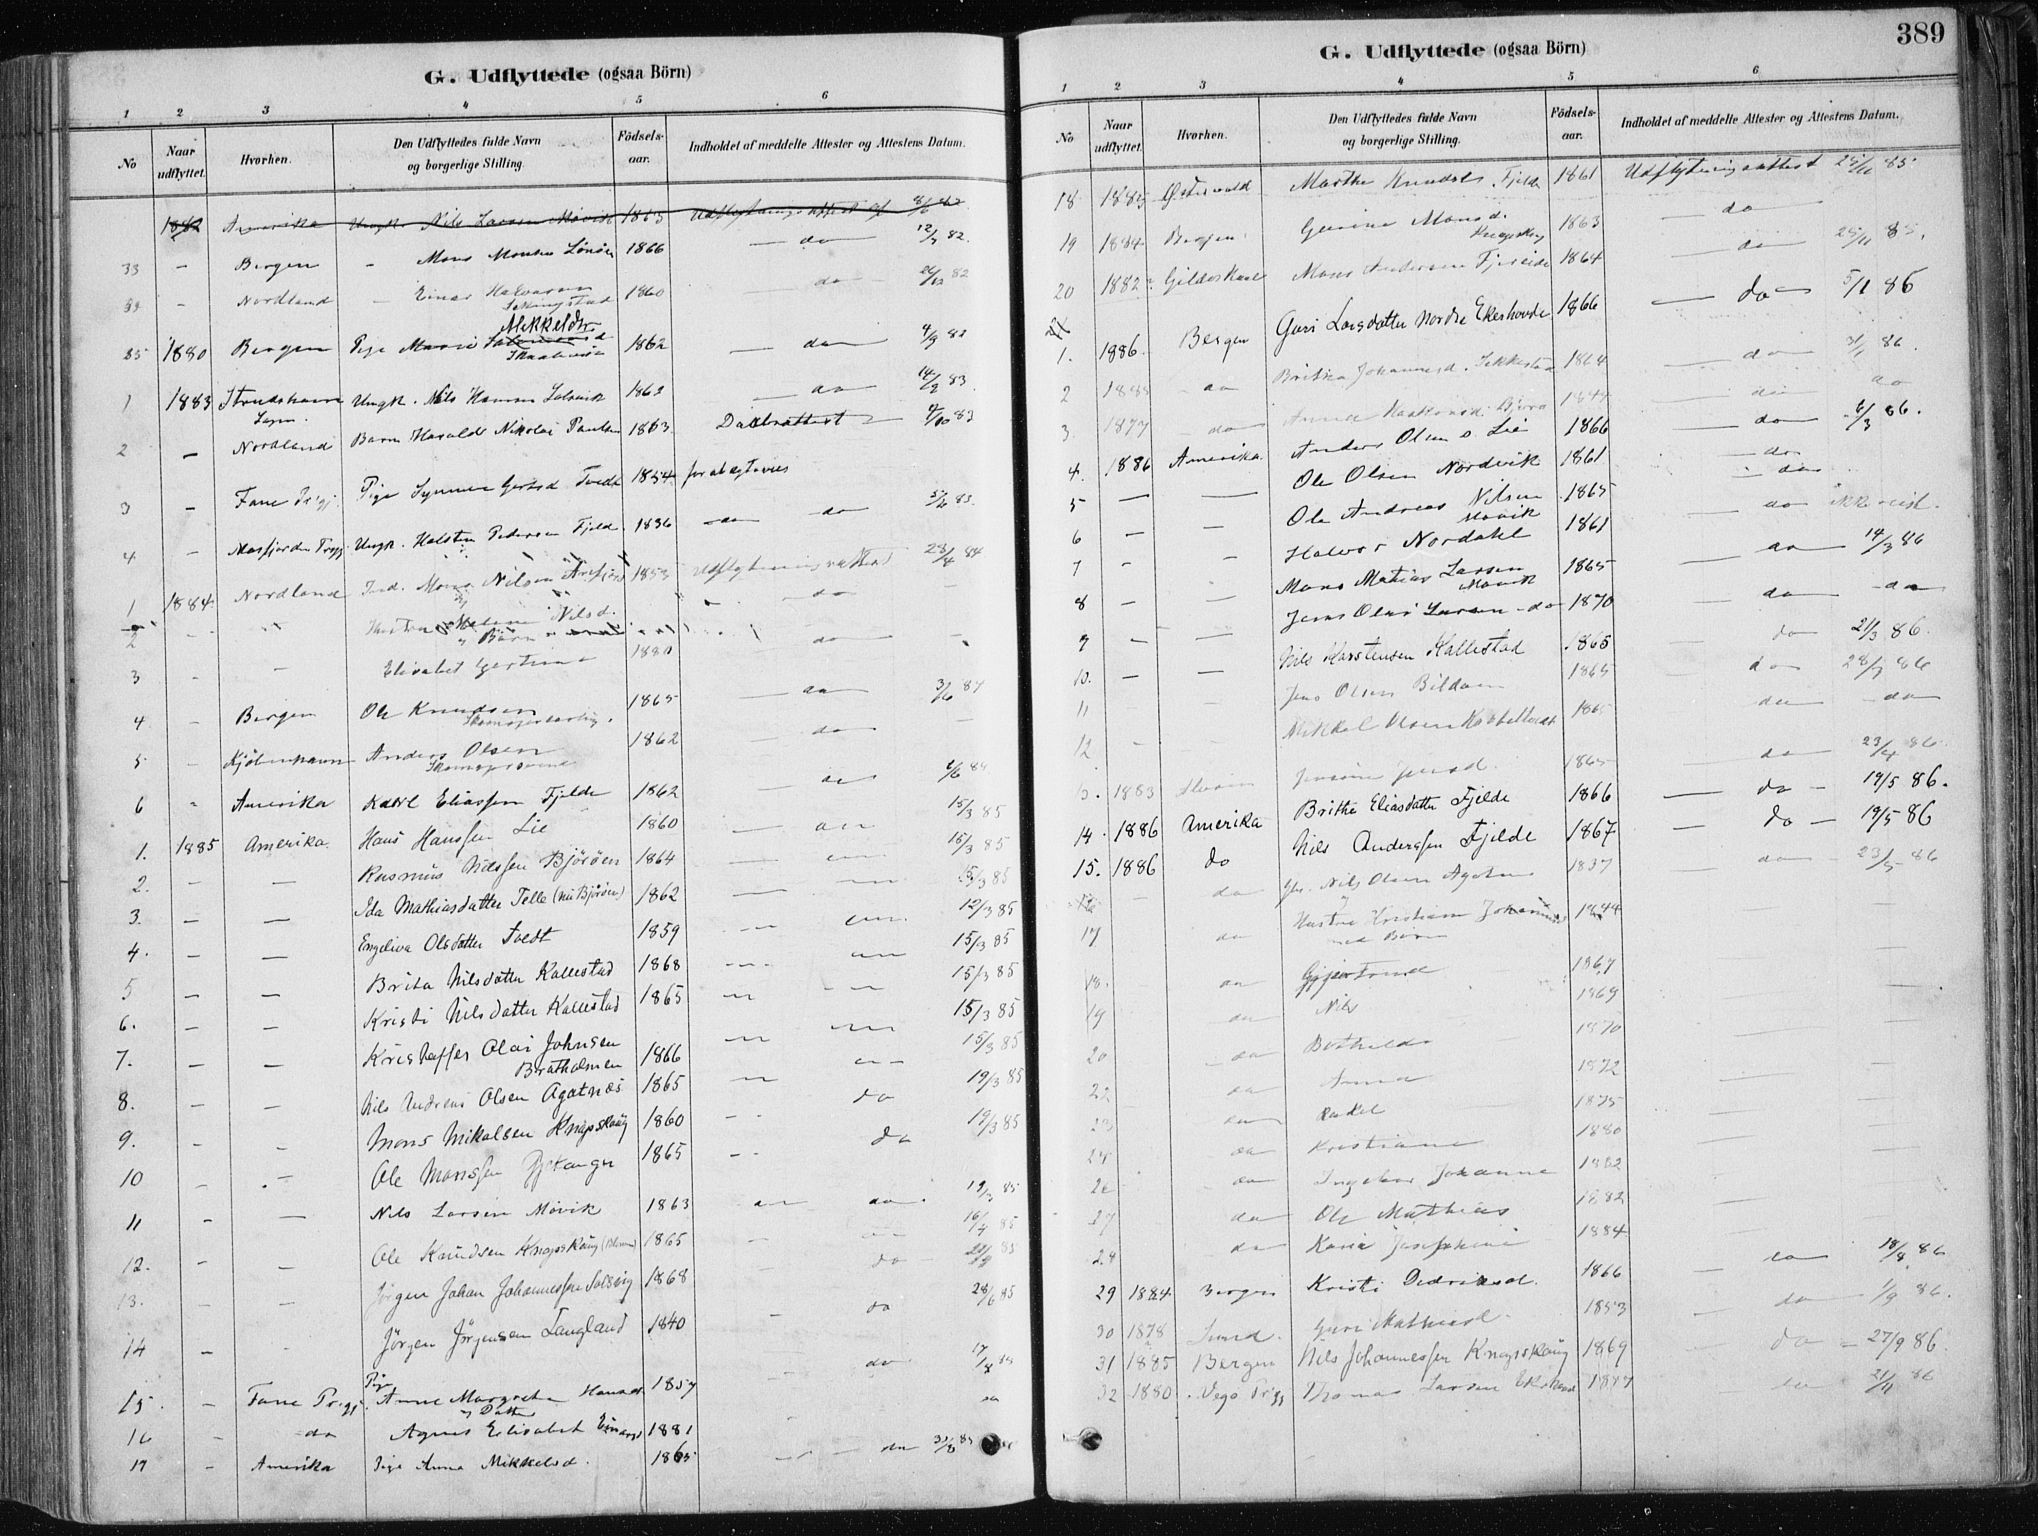 389
G. Udflyttede (ogsaa Börn)
1 2 3 4 5 6
No Naar udflyttet. Hvorhen. Den Udflyttedes fulde Navn og borgerlige Stilling. Födsels-aar. Indholdet af meddelte Attester og Attestens Datum.
1882 Amerika Ungk. Nils Larsen Møvik 1863 Udflytningsattest af 8/6 82
33 - Bergen - Mons Monsen 1866 - do - 12/7 82.
34 - Nordland - Einar Halvorsen 1860 - do - 82
Mikkelsdr.
35 1880 Bergen Pige Marie 1862 - do - 4/9 82
1 1883 Ungk. Nils Hansen 1862 - do 14/2 83.
2 - Nordland Barn Harald Nikolai Paulsen 1863 Daabsattest - 4/10 83
3 - Fane Prgj. Pige Synneve Gertsd Tvedt 1854
4 - Masfjorden Prgj. Ungk. Halsten Pedersen Fjeld 1836 - do - do 5/6 83.
1 1884 Nordland Ind. Mons Nilsen 1853 Udflytningsattest 23/4 84
2 - Hustru Nilsd. - do -
" Börn
3 - - Elisabet Gertine 1880 - do -
4 - Bergen Ole Knudsen 1865 - do - 3/6 84
5 - Kjöbenhavn Anders Olsen 1862 - do -
6 - Amerika Karl Eliassen Fjelde 1862 - do 6/6 84
1. 1885 Amerika Hans Hanssen Lie 1860 15/3 85
2. - - Rasmus Nilssen Björöen 1864 15/3 85
3. - - Ida Mathiasdatter Telle (nu Björöen) 1862 15/3 85
4. - - Engelina Olsdatter Tvedt 1859 12/3 85
5 - - Brita Nilsdatter Kallestad 1868 15/3 85
6. - - Kristi Nilsdatter Kallestad 1865 15/3 85
7. - - Kristoffer Olai Johnsen Bratholmen 1866 15/3 85
8. - - Nils Andreas Olsen Agatnæs 1865 15/3 85
9. - - Mons Mikalsen Knapskoug 1860 do 19/3 85
10 - - Ole Monssen 1865 do 19/3 85
11 - - Nils Larsen Møvik 1863 do 19/3 85
12. - - Ole Knudsen Knapskoug 1865 16/4 85
13. - - Jörgen Johan Johannessen Solsvig 1868 do 85
14 - Jörgen Jörgensen Langland 1840 do 28/6 85
15. - Fane Prgj. Pige Anne Margrethe Hansd. 1857 do 17/8 85
" Datter
16 - do Agnes Elisabet 1881 do
17 - Amerika Pige Anna Mikkelsd. 1865 - do 31/8 85
G. Udflyttede (ogsaa Börn)
1 2 3 4 5 6
No Naar udflyttet. Hvorhen. Den Udflyttedes fulde Navn og borgerlige Stilling. Födsels-aar. Indholdet af meddelte Attester og Attestens Datum.
18 1885 Marthe Knudsd. Fjelde 1861 Udflytningsattest 25/11 85
19 1884 Bergen Gurine Monsd. Knapskog 1863 - do -
20 1882 Gildeskaal Mons Andersen 1864 - do 25/11 85.
1. 1886. Bergen Guri Larsdatter Nordre Ekerhovde 1866 - do - 5/1 86
2 1885 do Britha Johannesd. 1864 - do - 31/1 86.
3. 1877 do Anna 1844 - do do
4. 1886 Amerika Anders Olsen Lie 1866 - do - 6/3 86.
5 - - Ole Olsen Nordvik 1861 - do -
6 - - Ole Andreas Nilsen Møvik 1865 - do
7 - - Halvor Nordahl 1861 - do ikke reist.
8 - - Mons Matias Larsen Møvik 1865 - do - 14/3 86
9 - - Jens Olai Larsen - do 1870 - do - do
10. - - Nils Karstensen Kallestad 1865 - do 21/3 86.
11 - - Jens Olsen Bildøen 1865 do 28/3 86
12 - - Mikkel Olsen 1865 do - do
13. 1883 Jensine Jensd. 1865 - do 23/4 86
14. 1886 Amerika Brithe Eliasdatter Fjelde 1866 - do - 19/5 86.
15. 1886 do Nils Anderssen Fjelde 1867 - do - 19/5 86
16 - do Nils Olsen Agatnæs 1837 do 23/5 86
17 do Hustru Kristiane Johannesd. 1844
med Börn
18. do Gjertrud 1867
19 do Nils 1869
20 do Bothilda 1870
22 do Anna 1872
23 do Rakel 1875
24 do Kristiane 1880
26 do Ingebor Johanne 1882
27 do Ole Mathias 1882
28 do Karie Josephine 1884
29 1884 Bergen Kristi Dedriksd. 1866 do 18/8 86
30 1878 Sund. Guri Mathiasd. 1853 - do - 1/9 86.
31 1885 Bergen Nils Johannessen Knapskoug 1869 do - 27/9 86.
32 1880 Vegø Prgj Thomas Larsen 1847 do 21/11 86